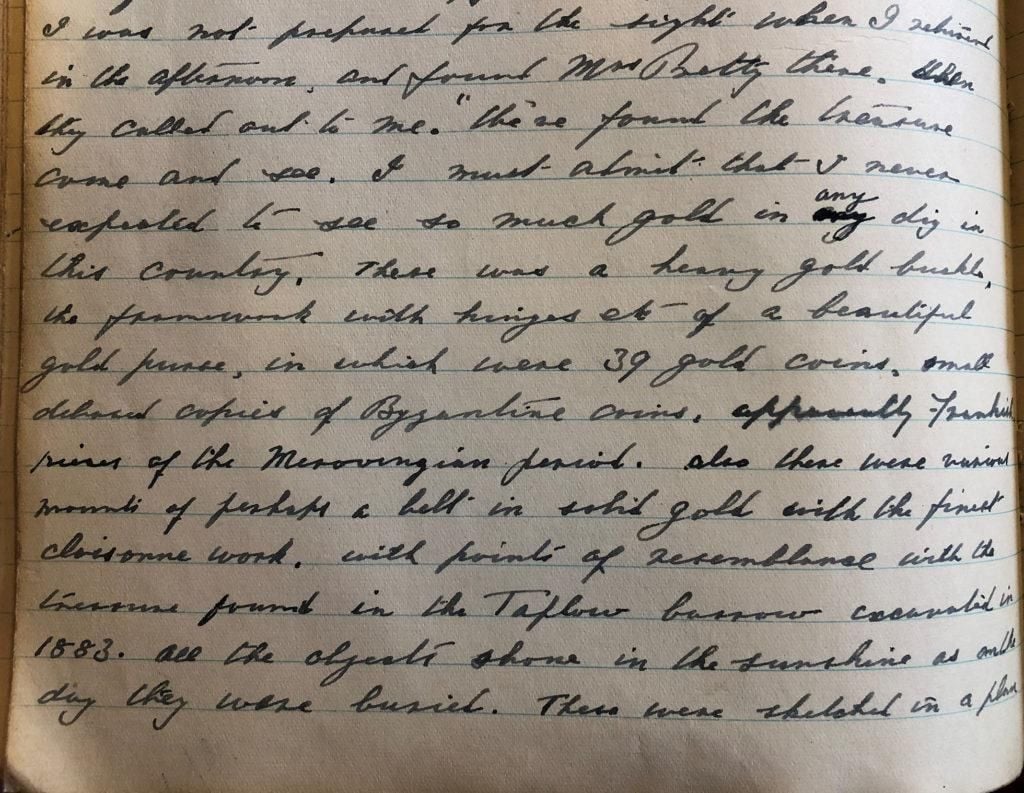 I was not prepared for the sight when I returned
in the afternoon, and found Mrs Pretty there. when
they called out to me. "We've found the treasure
come and see. I must admit that I never
expected to see so much gold in any dig in
this country. There was a heavy gold buckle,
the framework with hinges etc of a beautiful
gold purse, in which were 39 gold coins, small
debased copies of Byzantine coins. apparently Frankish
pieces of the Merovingian period. also there were various
mounts of perhaps a belt in solid gold with the finest
cloisonne work. with points of resemblance with the
treasure found in the Taplow barrow excavated in
1883. all the objects shone in the sunshine as on the
day they were buried. These were sketched in a plan